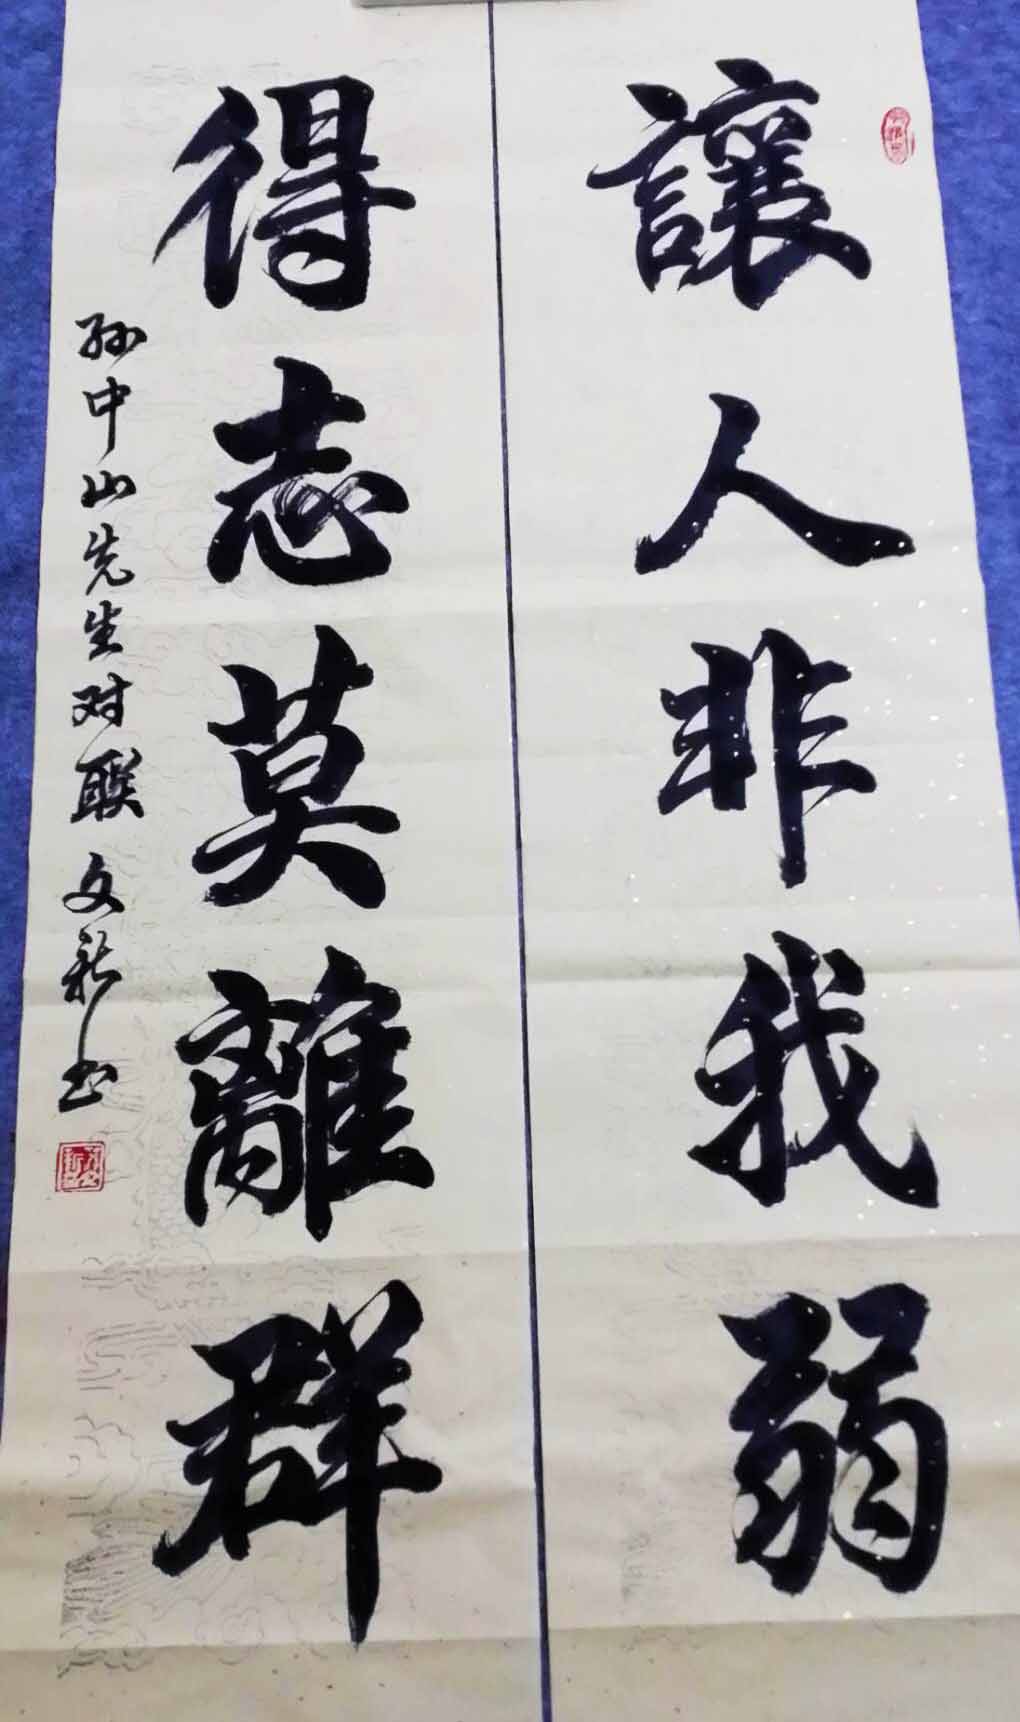 讓人非我弱
得志莫離群
孙中山先生对联 文新书